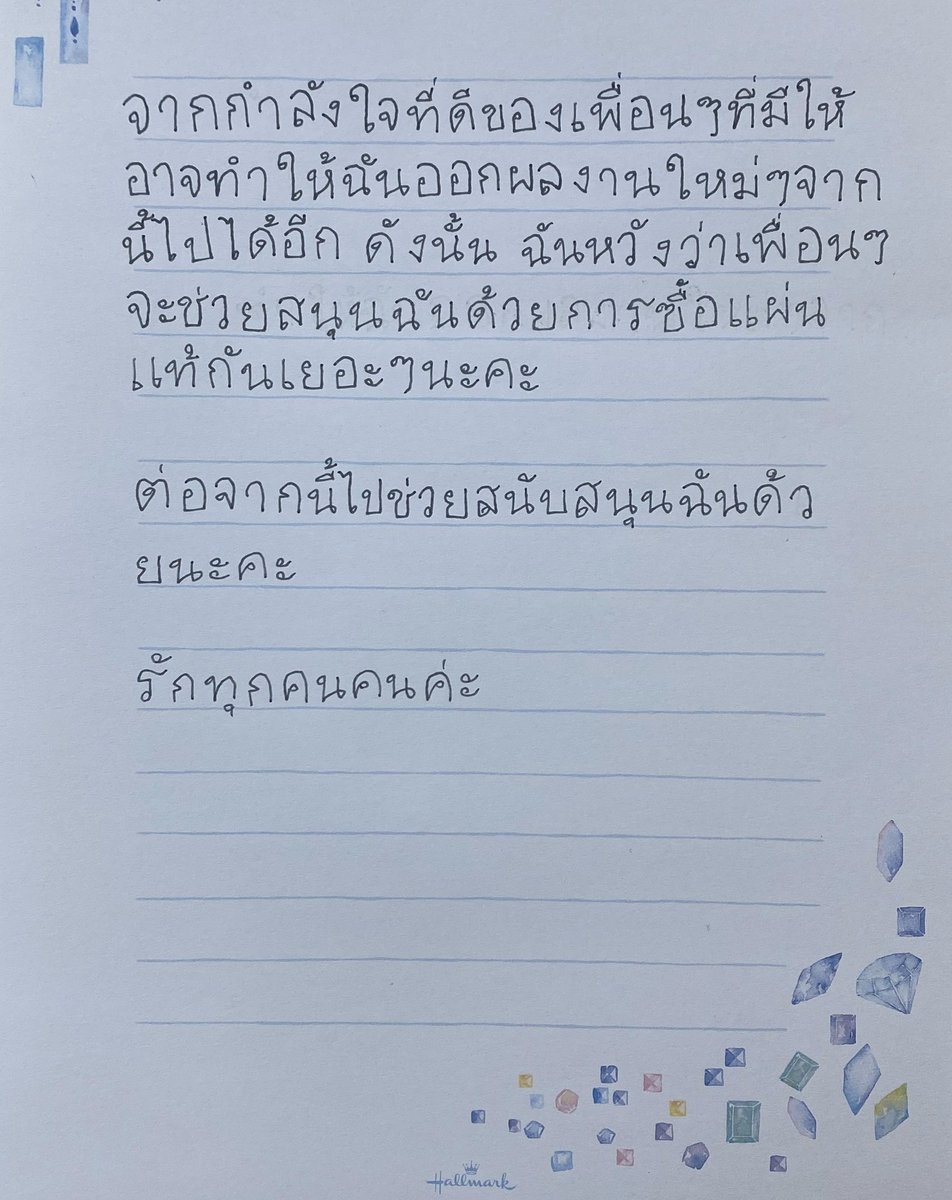 จากกำลังใจที่ดีของเพื่อนๆที่มีให้
อาจทำให้ฉันออกผลงานใหม่ๆจาก
นี้ไปได้อีก ดังนั้น ฉันหวังว่าเพื่อนๆ
จะช่วยสนุนฉันด้วยการซื้อแผ่น
แท้กันเยอะๆนะคะ
ต่อจากนี้ไปช่วยสนับสนุนฉันด้ว
ยนะคะ
รักทุกคนคนค่ะ
Hallmark